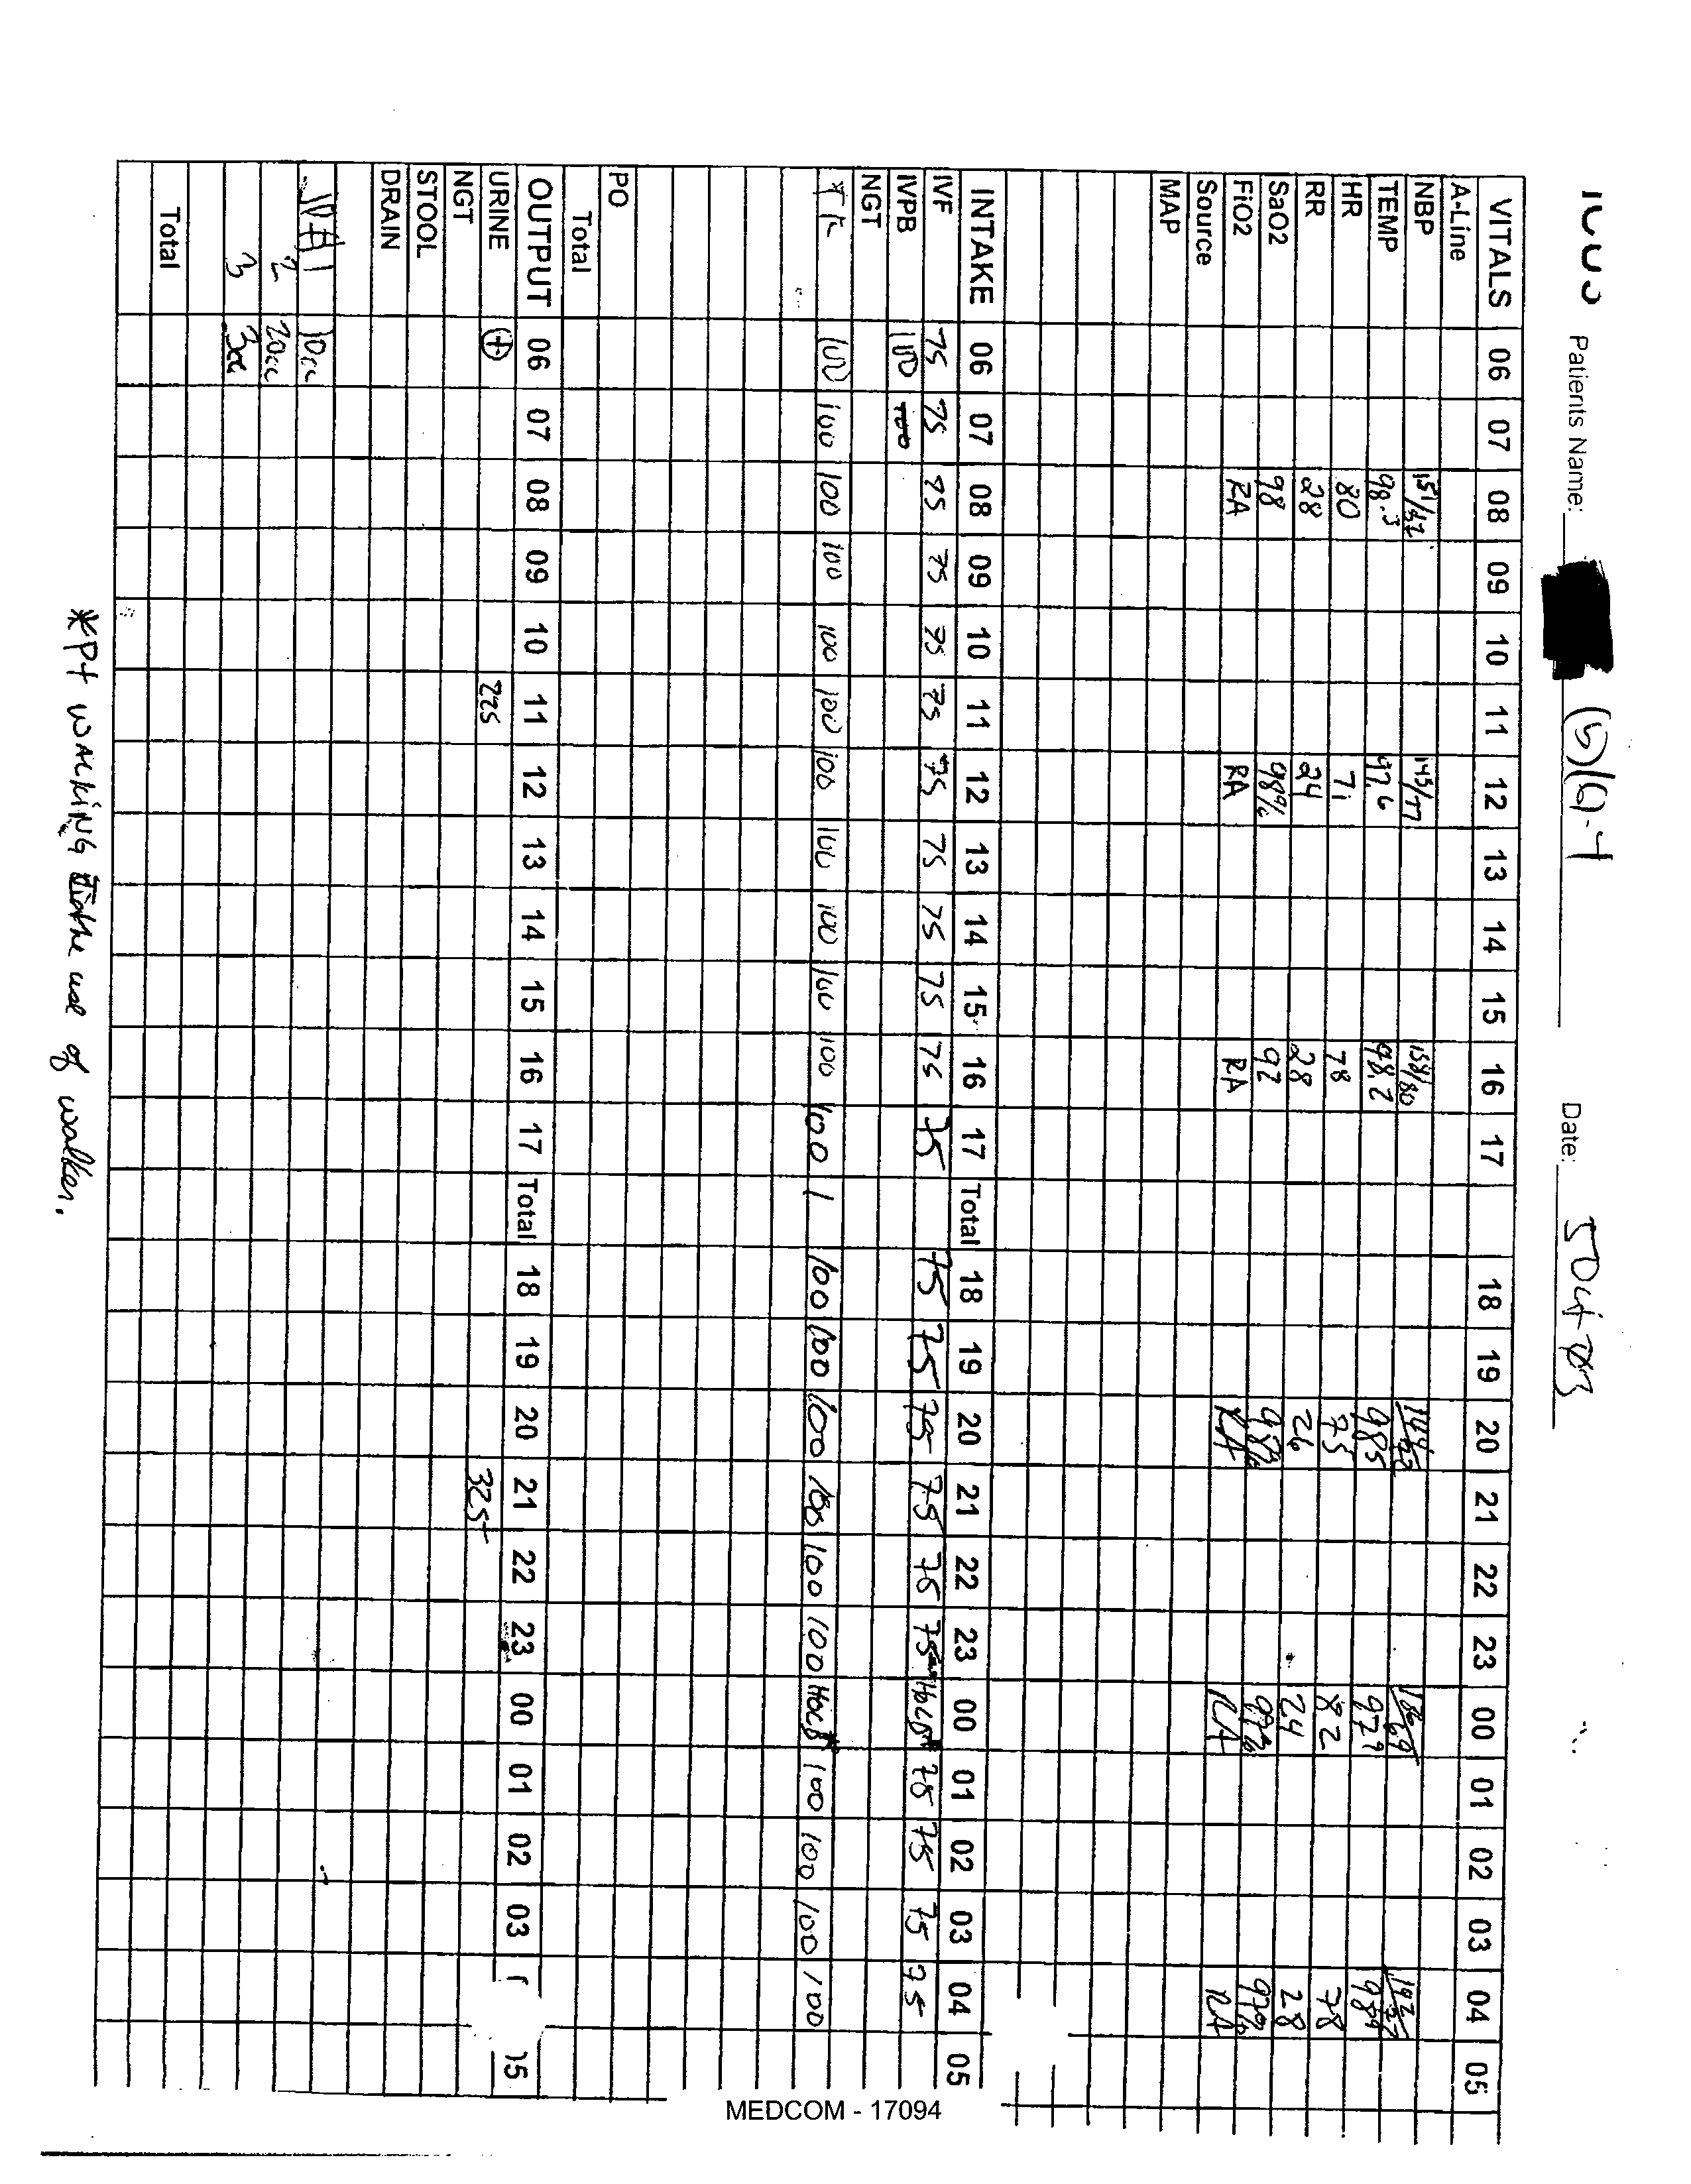 Patients Name: (b)(6)-4 Date: 5 Oct 03
VITALS 06 07 08 09 10 11 12 13 14 15 16 17 18 19 20 21 22 23 00 01 02 03 04 05
A-Line
NBP 143/77 158/80
TEMP 98.3 97.6 98.2 985 979 989
HR 80 71 78 75 82 78
RR 28 24 28 26 24 28
SaO2 98 98% 92 98% 99% 97%
FiO2 RA RA RA RA RA RA
Source
MAP
INTAKE 06 07 08 09 10 11 12 13 14 15 16 17 Total 18 19 20 21 22 23 00 01 02 03 04 05
IVF 75 75 75 75 75 75 75 75 75 75 75 75 75 75 75 75 75 75 HOLD* 75 75 75 75
IVPB 100 100
NGT
100 100 100 100 100 100 100 100 100 100 100 100 / 100 100 100 100 100 100 HOLD* 100 100 100 100
PO
Total
OUTPUT 06 07 08 09 10 11 12 13 14 15 16 17 Total 18 19 20 21 22 23 00 01 02 03 05
URINE (+) 225 325
NGT
STOOL
DRAIN
JP #1 10cc
2 20cc
3 3cc
Total
*Pt WALKING the use of walker.
MEDCOM - 17094